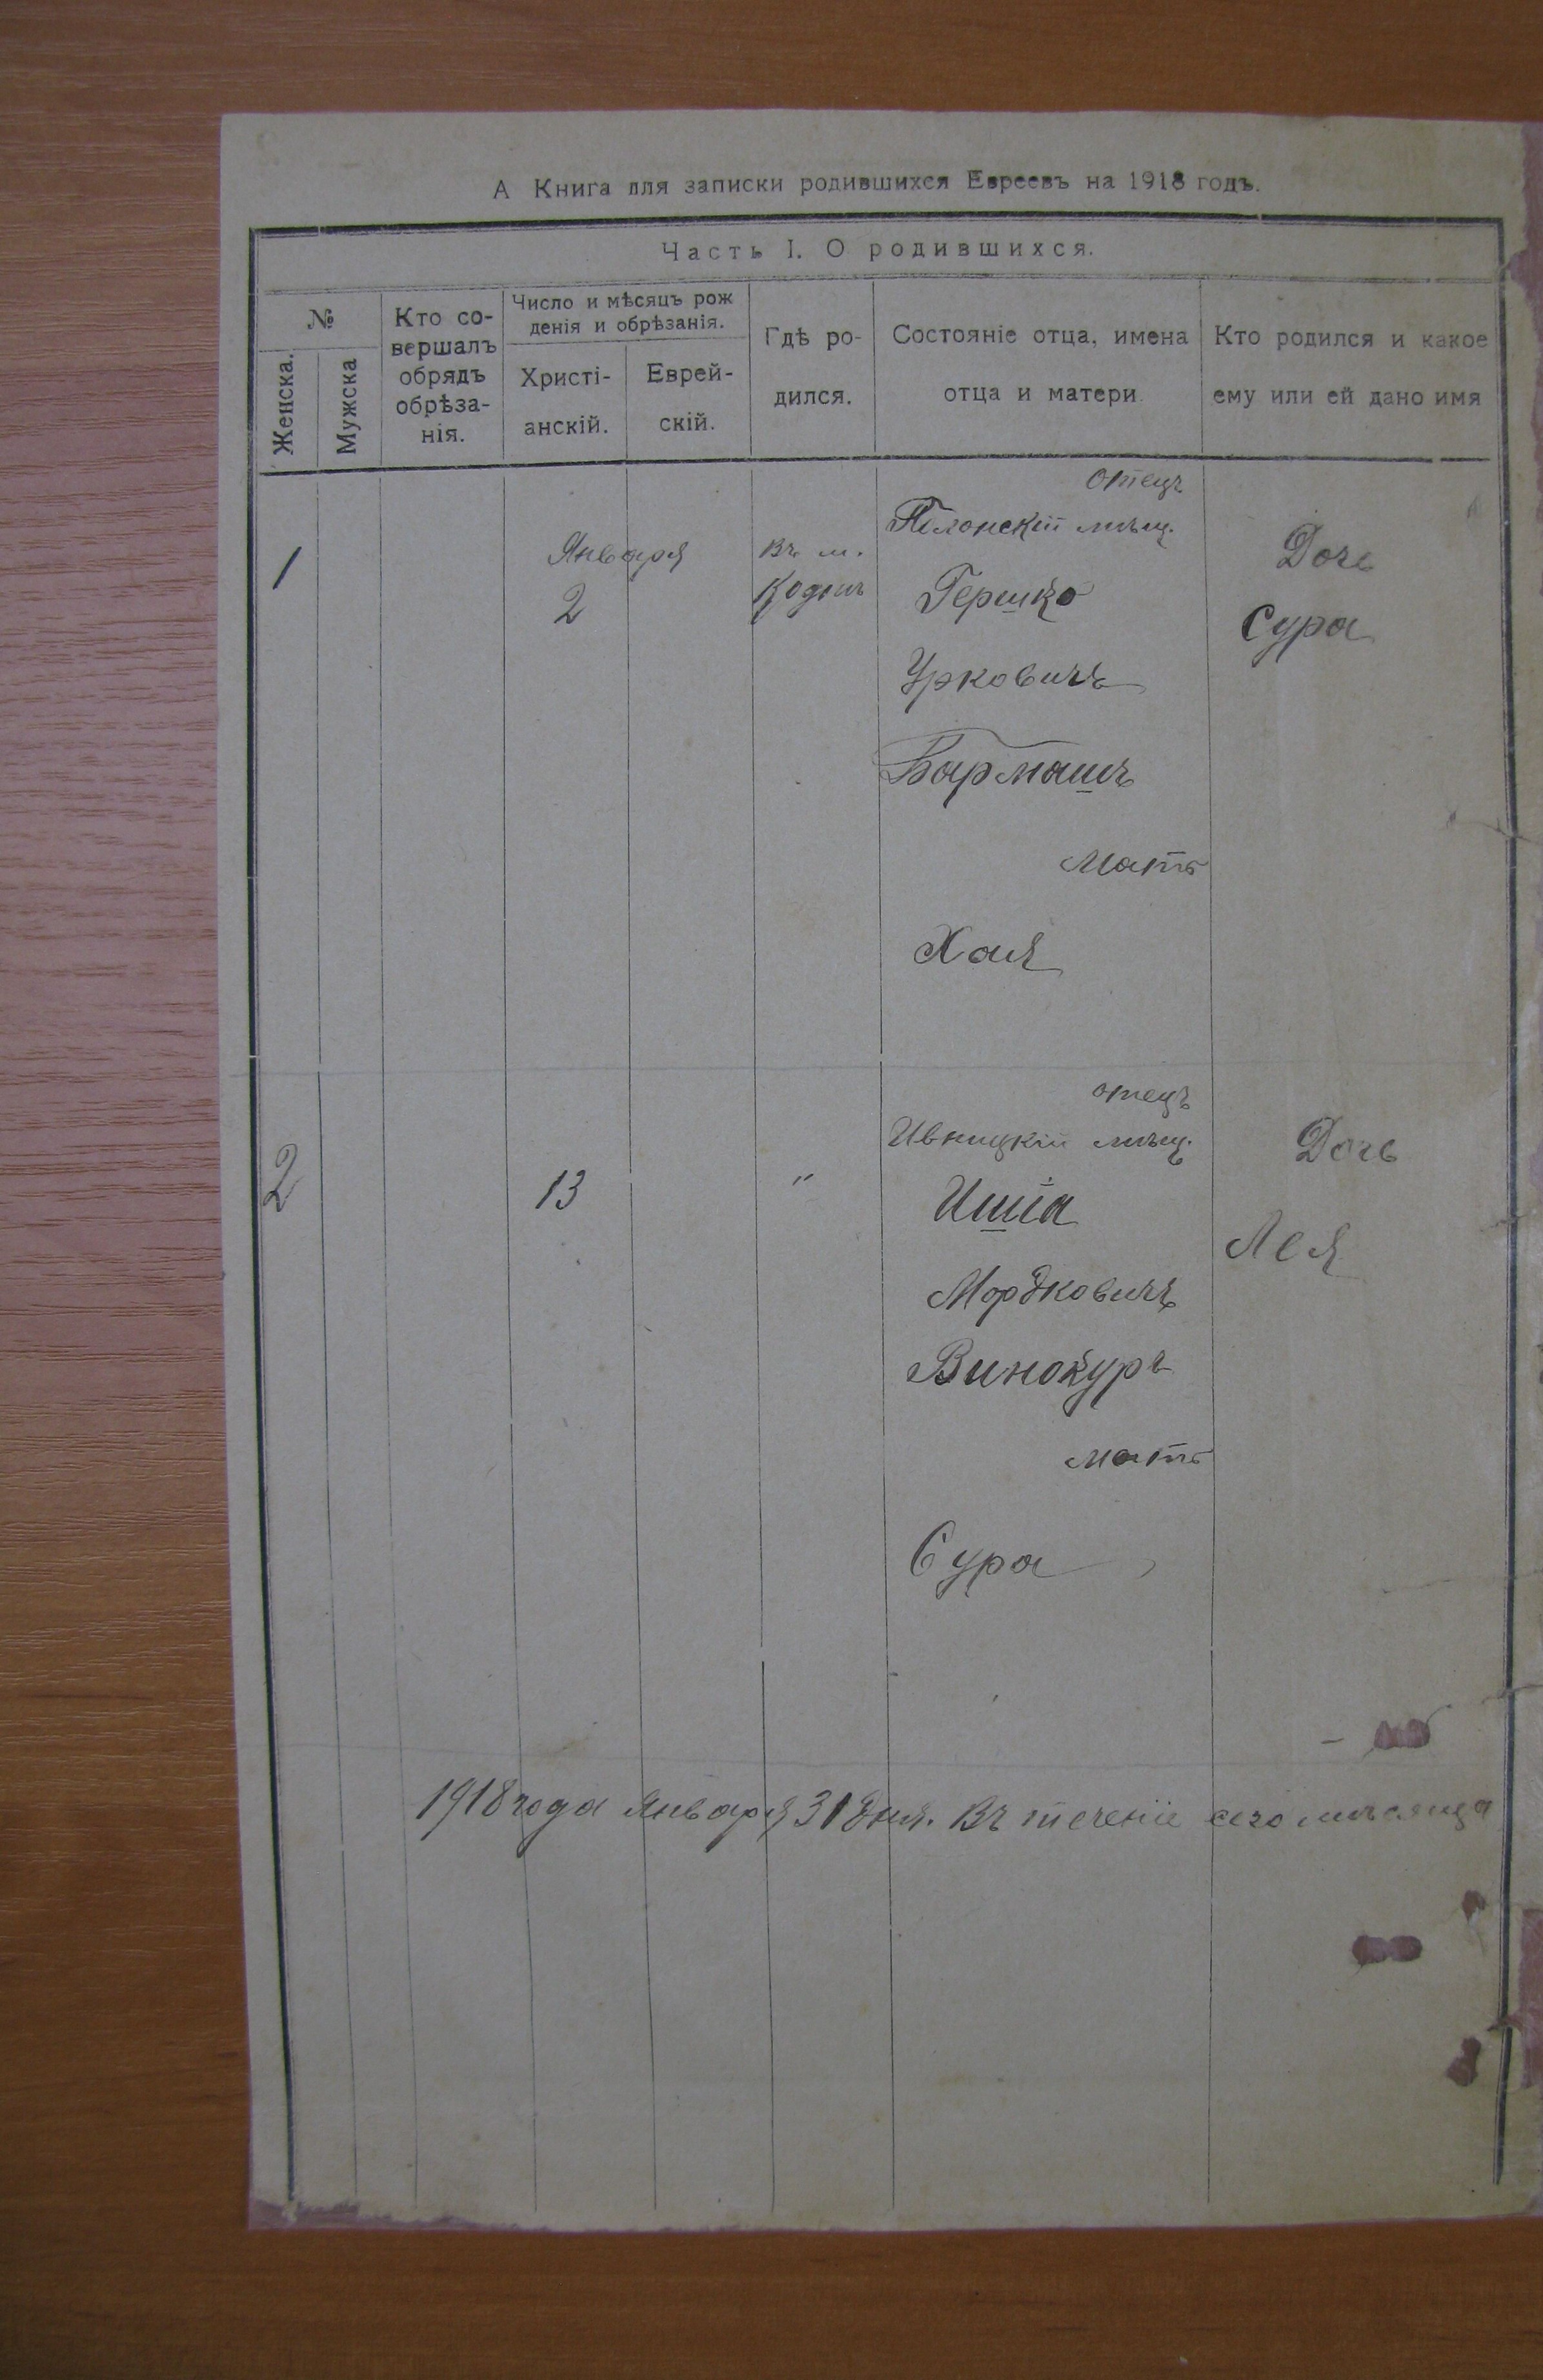 А Книга для записки родившихся Евреевъ на 1918 годъ.
Часть I. О родившихся.
№
Женска.
Мужска
Кто со-
вершалъ
обрядъ
обрѣза-
нія.
Число и мѣсяцъ рож
денія и обрѣзанія.
Христі-
анскій.
Еврей-
скій.
Гдѣ ро-
дился.
Состояніе отца, имена
отца и матери
Кто родился и какое
ему или ей дано имя
1
Января
2
Въ м.
Кодня
отецъ
мѣщ.
Гершко
Урковичъ
Бармашъ
мать
Хая
Дочь
Сура
2
13
"
отецъ
Ивницкій мѣщ.
Ишіа
Мордковичъ
Винокуръ
мать
Сура
Дочь
Лея
1918 года Января 31 дня. Въ теченіе сего мѣсяца